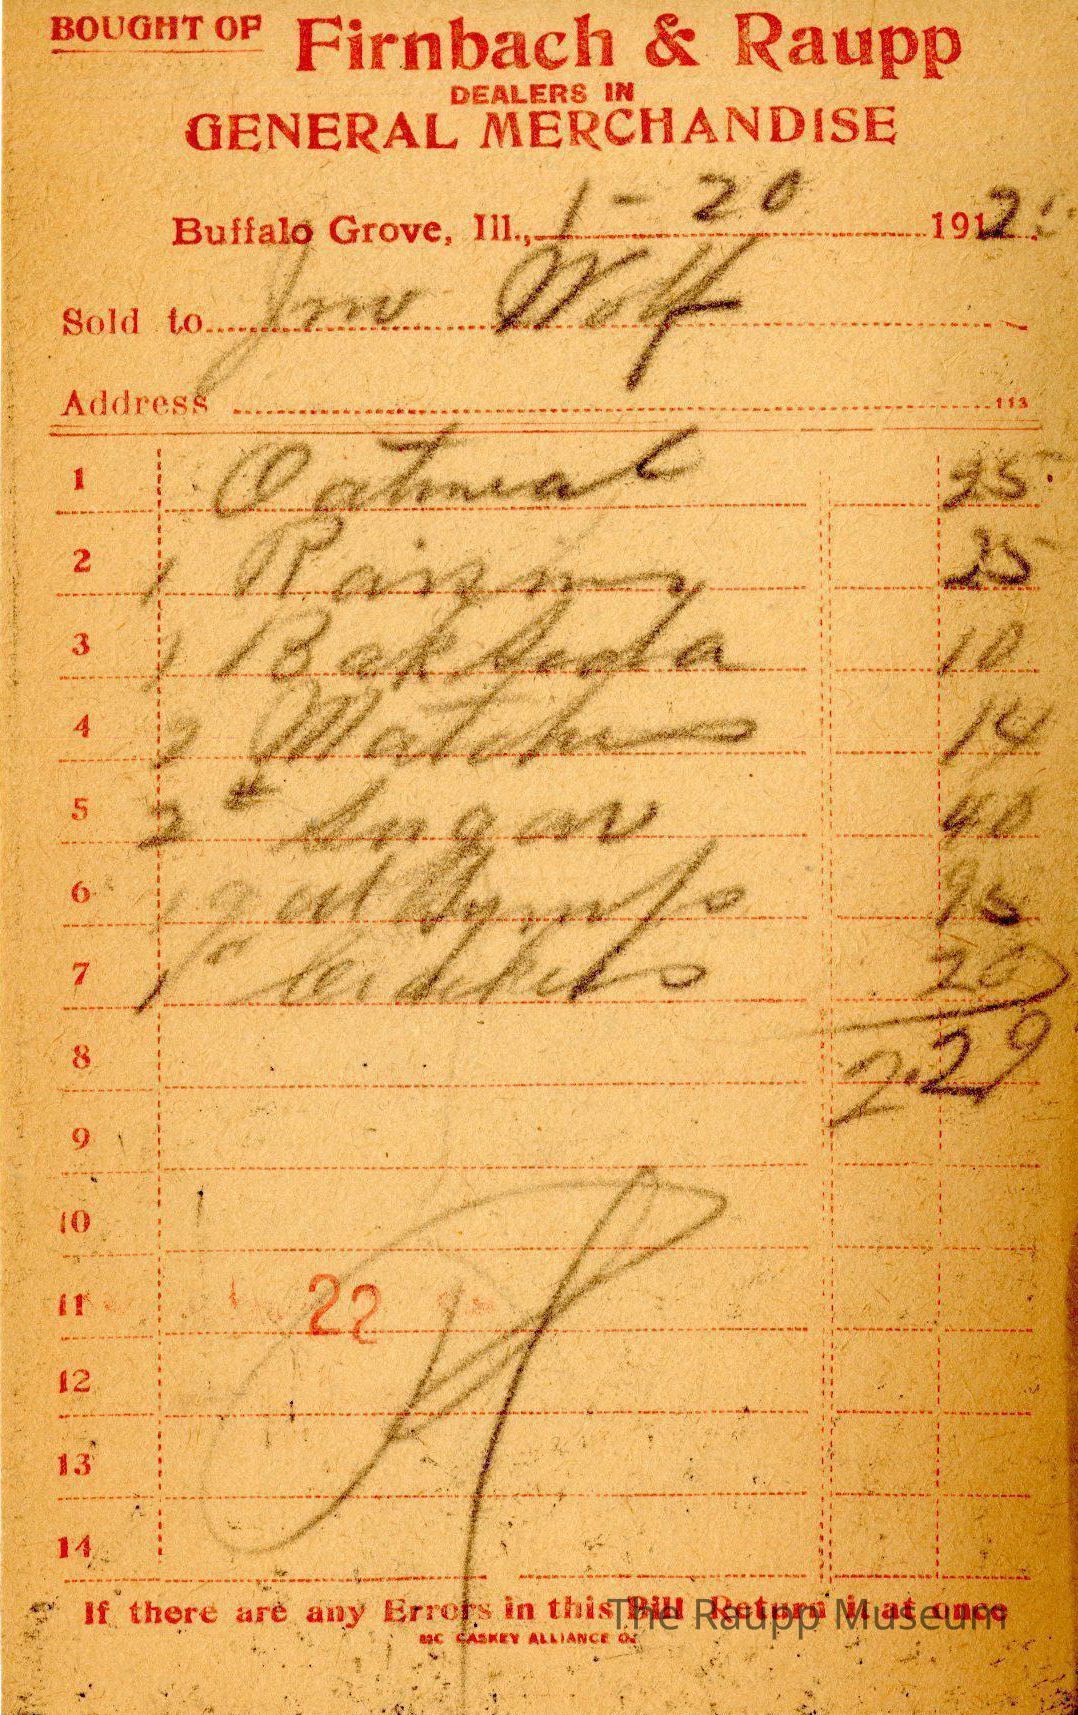 BOUGHT OF Firnbach & Raupp
DEALERS IN
GENERAL MERCHANDISE
Buffalo Grove, Ill., 1 - 20 191
Sold to Jno Wolf
Address 113
1 Oatmeal 25
2 1 Raisins 25
3 1 Bak Soda 10
4 2 Matches 14
5 2 # Sugar 40
6 1 gal Syrup 95
7 1 Crackers 20
8 2.29
9
10
11 22
12
13
14
If there are any Errors in this Bill Return it at once
The Raupp Museum
MC CASKEY ALLIANCE O.